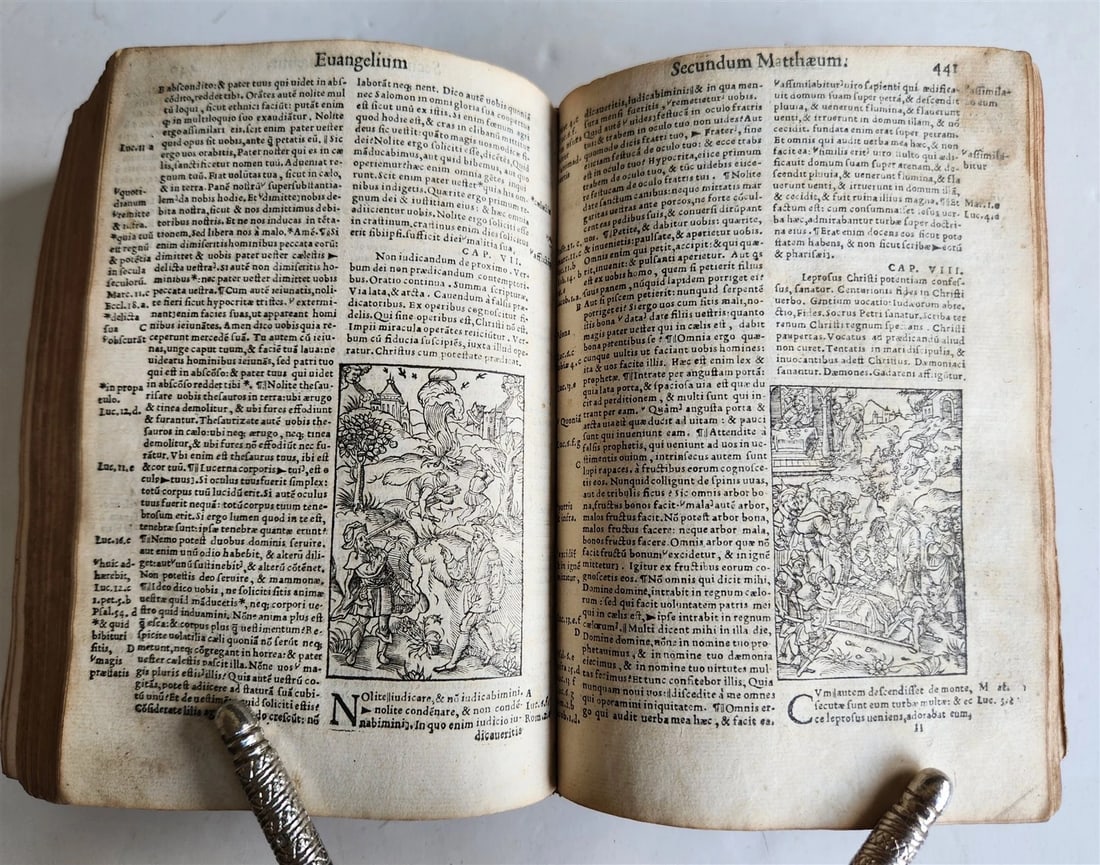 Euangelium
B abscondito: & pater tuus qui uidet in abs-
cōdito, reddet tibi. Orātes autē nolite mul
tū loqui, sicut ethnici faciūt: putāt enim
q̄ in multiloquio suo exaudiātur. Nolite
ergo assimilari eis. scit enim pater uester
quid opus sit uobis, antē q̄ petatis eū. Sic
ergo uos orabitis, Pater noster qui es in cæ
lis, sanctificetur nomen tuū. Adueniat re-
gnum tuū. Fiat uolūtas tua, sicut in cælo,
& in terra. Panē nostrū supersubstantia-
lem da nobis hodie. Et dimitte nobis de-
bita nostra, sicut & nos dimittimus debi-
toribus nostris. Et ne nos inducas in tēta-
tionem, sed libera nos à malo. *Amē. Si
enim dimiseritis hominibus peccata eorū:
dimittet & uobis pater uester cælestis
delicta uestra. Si autē non dimiseritis ho-
minibus: nec pater uester dimittet uobis
peccata uestra. Cum autē ieiunatis, noli-
te fieri sicut hypocritæ tristes. extermi-
nant enim facies suas, ut appareant homi
nibus ieiunātes. Amen dico uobis quia re-
ceperunt mercedē suā. Tu autem cū ieiu-
nas, unge caput tuum, & faciē tuā laua: ne
uidearis hominibus ieiunās, sed patri tuo
qui est in abscōso: & pater tuus qui uidet
in abscōso reddet tibi *. Nolite thesau-
risare uobis thesauros in terra: ubi ærugo
& tinea demolitur, & ubi fures effodiunt
& furantur. Thesaurizate autē uobis the-
sauros in cælo: ubi neq; ærugo, neq; tinea
demolitur, & ubi fures nō effodiūt nec fu-
rātur. Vbi enim est thesaurus tuus, ibi est
& cor tuū. Lucerna corporis tui, est o
culus tuus. Si oculus tuus fuerit simplex:
totū corpus tuū lucidū erit. Si autē oculus
tuus fuerit nequā: totū corpus tuum tene-
brosum erit. Si ergo lumen quod in te est,
tenebræ sunt: ipsæ tenebræ quantæ erunt?
Nemo potest duobus dominis seruire.
aut enim unū odio habebit, & alterū dili-
get: aut unū sustinebit, & alterū cōtēnet.
Non potestis deo seruire, & mammonæ.
Ideo dico uobis, ne soliciti sitis animæ
uestræ quid māducetis*, neq; corpori ue-
stro quid induamini. Nōne anima plus est
q̄ esca: & corpus plus q̄ uestimentum? Re-
spicite uolatilia cæli quoniā nō serūt neq;
metunt, neq; cōgregant in horrea: & pater
uester cælestis pascit illa. Nōne uos ma-
gis pluris estis illis? Quis autē uestrū co-
gitās, potest adiicere ad staturā suā cubi-
tū unū? Et de uestimēto quid soliciti estis?
Considerate lilia agri quomodo crescūt: nō
Luc. 11 a
quoti-
dianum
remitte
& infra.
*quia tuū
est regnū
& potētia
in secula
seculorū.
Marc. 11. c
Eccl. 28. a
*delicta
sua C
obscurāt
*in propa
tulo.
Luc. 12. d.
Luc. 11. e
Luc. 16. c
huic ad-
hærebit,
Luc. 12. c
1. pet. 5. b
Psal. 54. d
*& quid
bibituri
sitis, D
magis
præstatis
laborāt neq; nent. Dico autē uobis quoniā
nec Salomon in omni gloria sua coopertus
est sicut unū ex istis. Si enim fœnum agri
quod hodie est, & cras in clibanum mittitur
deus sic uestit: quāto magis uos modicæ fi-
dei? Nolite ergo soliciti esse, dicētes, Quid
māducabimus, aut quid bibemus, aut quo
operiemur? hæc enim omnia gētes inqui
runt. Scit enim pater uester quia his om-
nibus indigetis. Quærite ergo primum re-
gnum dei & iustitiam eius: & hæc omnia
adiicientur uobis. Nolite ergo soliciti esse
in crastinum, crastinus enim dies solicitus
erit sibi ipsi. sufficit diei malitia sua.
CAP. VII.
Non iudicandum de proximo. Ver-
bum dei non prædicandum contemptori-
bus. Oratio continua. Summa scripturæ.
Via lata, & arcta. Cauendum à falsis præ-
dicatoribus. Ex operibus cognoscitur fi-
delis. Qui sine operibus est, Christi nō est.
Impii miracula operātes reiiciūtur. Ver-
bum cū fiducia suscipiēs, iuxta illud ope-
ratur. Christus cum potestate prædicat.
NOlite iudicare, & nō iudicabimini. A
nolite condēnare, & non condē-
nabimini. In quo enim iudicio iu-
dicaueritis
Luc. 6. f.
Rom. 2. a
Secundum Matthæum.
441
dicaueritis, iudicabimini & in qua men-
sura mensi fueritis, remetietur uobis.
Quid autē uides festucā in oculo fratris
tui: & trabem in oculo tuo non uides? Aut
quomodo dicis fratri tuo, Frater, sine
eiiciam festucā de oculo tuo: & ecce trabs
est in oculo tuo? Hypocrita, eiice primum
trabem de oculo tuo, & tūc uidebis eiice-
re festucam de oculo fratris tui. Nolite
dare sanctum canibus: neque mittatis mar
garitas uestras ante porcos, ne forte cōcul-
cent eas pedibus suis, & conuersi dirūpant
uos. Petite, & dabitur uobis: quærite,
& inuenietis: pulsate, & aperietur uobis.
Omnis enim qui petit, accipit: & qui quæ-
rit, inuenit: & pulsanti aperietur. Aut qs
est ex uobis homo, quem si petierit filius
suus panem, nūquid lapidem porriget ei?
Aut si piscem petierit: nunquid serpentē
porriget ei? Si ergo uos cum sitis mali, no-
stis bona data dare filiis uestris: quanto
magis pater uester qui in cælis est, dabit
bona petentibus se? Omnia ergo quæ-
cunque uultis ut faciant uobis homines:
et uos facite illis. Hæc est enim lex &
prophetæ. Intrate per angustam portā:
quia lata porta, & spaciosa uia est quæ du
cit ad perditionem, & multi sunt qui in-
trant per eam. Quàm angusta porta &
arcta uia est quæ ducit ad uitam: & pauci
sunt qui inueniunt eam. Attendite à
falsis prophetis, qui ueniunt ad uos in ue-
stimentis ouium, intrinsecus autem sunt
lupi rapaces. à fructibus eorum cognosce-
tis eos. Nunquid colligunt de spinis uuas,
aut de tribulis ficus? Sic omnis arbor bo-
na, fructus bonos facit. mala autē arbor,
malos fructus facit. Nō potest arbor bona,
malos fructus facere: neque arbor mala,
bonos fructus facere. Omnis arbor quæ nō
facit fructū bonum excidetur, & in ignē
mittetur. Igitur ex fructibus eorum co-
gnoscetis eos. Nō omnis qui dicit mihi,
Domine domine, intrabit in regnum cælo-
rum: sed qui facit uoluntatem patris mei
qui in cælis est, ipse intrabit in regnum
cælorum. Multi dicent mihi in illa die,
Domine domine, nōne in nomine tuo pro
phetauimus, & in nomine tuo dæmonia
eiecimus, & in nomine tuo uirtutes mul
tas fecimus? Et tunc confitebor illis, Quia
nunquam noui uos: discedite à me omnes
qui operamini iniquitatem. Omnis er-
go qui audit uerba mea hæc, & facit ea,
assimilabitur uiro sapienti qui ædifica-
uit domum suam supra petrā, & descendit
pluuia, & uenerunt flumina, & flauerunt
uenti, & irruerunt in domum illam, & nō
cecidit. fundata enim erat super petram.
Et omnis qui audit uerba mea hæc, & non
facit ea: similis erit uiro stulto qui ædi-
ficauit domum suam super arenam, & de-
scendit pluuia, & uenerunt flumina, & fla
uerunt uenti, & irruerunt in domum illā,
& cecidit, & fuit ruina illius magna. Et
factum est: cum consummasset Iesus uer-
ba hæc, admirabantur turbæ super doctri-
na eius. Erat enim docens eos sicut pote
statem habens, & non sicut scribæ eorū
& pharisæi.
assimila-
bitur
Mar. 1. c
Luc. 4. d
CAP. VIII.
Leprosus Christi potentiam confes-
sus, sanatur. Centurionis fides in Christi
uerbo. Gentium uocatio: Iudæorum abie-
ctio, Fides. Socrus Petri sanatur. Scriba ter
renum Christi regnum sperans. Christi
paupertas. Vocatus ad prædicandū aliud
non curet. Tentatis in mari discipulis, &
inuocantibus adest Christus. Dæmoniaci
sanantur. Dæmones. Gadareni affligūtur.
CVm autem descendisset de monte,
secutæ sunt eum turbæ multæ: & ec
ce leprosus ueniens, adorabat eum,
II